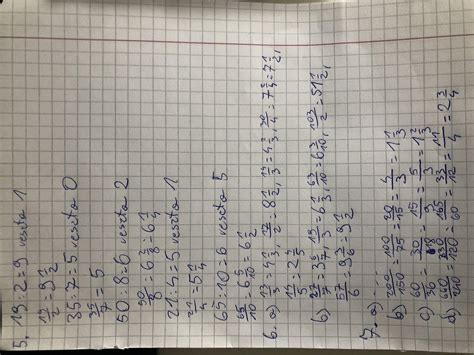 5. 19:2=9 reszta 1
19/2=9 1/2
35:7=5 reszta 0
35/7=5
50:8=6 reszta 2
50/8=6 2/8=6 1/4
21:4=5 reszta 1
21/4=5 1/4
65:10=6 reszta 5
65/10=6 5/10=6 1/2
6. a) 13/3=4 1/3, 17/2=8 1/2, 13/3=4 1/3, 30/4=7 2/4=7 1/2,
12/5=2 2/5
b) 27/7=3 6/7, 19/3=6 1/3, 63/10=6 3/10, 103/2=51 1/2,
57/6=9 3/6=9 1/2
7. a)
b) 200/150=100/75=20/15=4/3=1 1/3
c) 60/36=30/18=15/9=5/3=1 2/3
d) 660/240=330/120=165/60=33/12=11/4=2 3/4